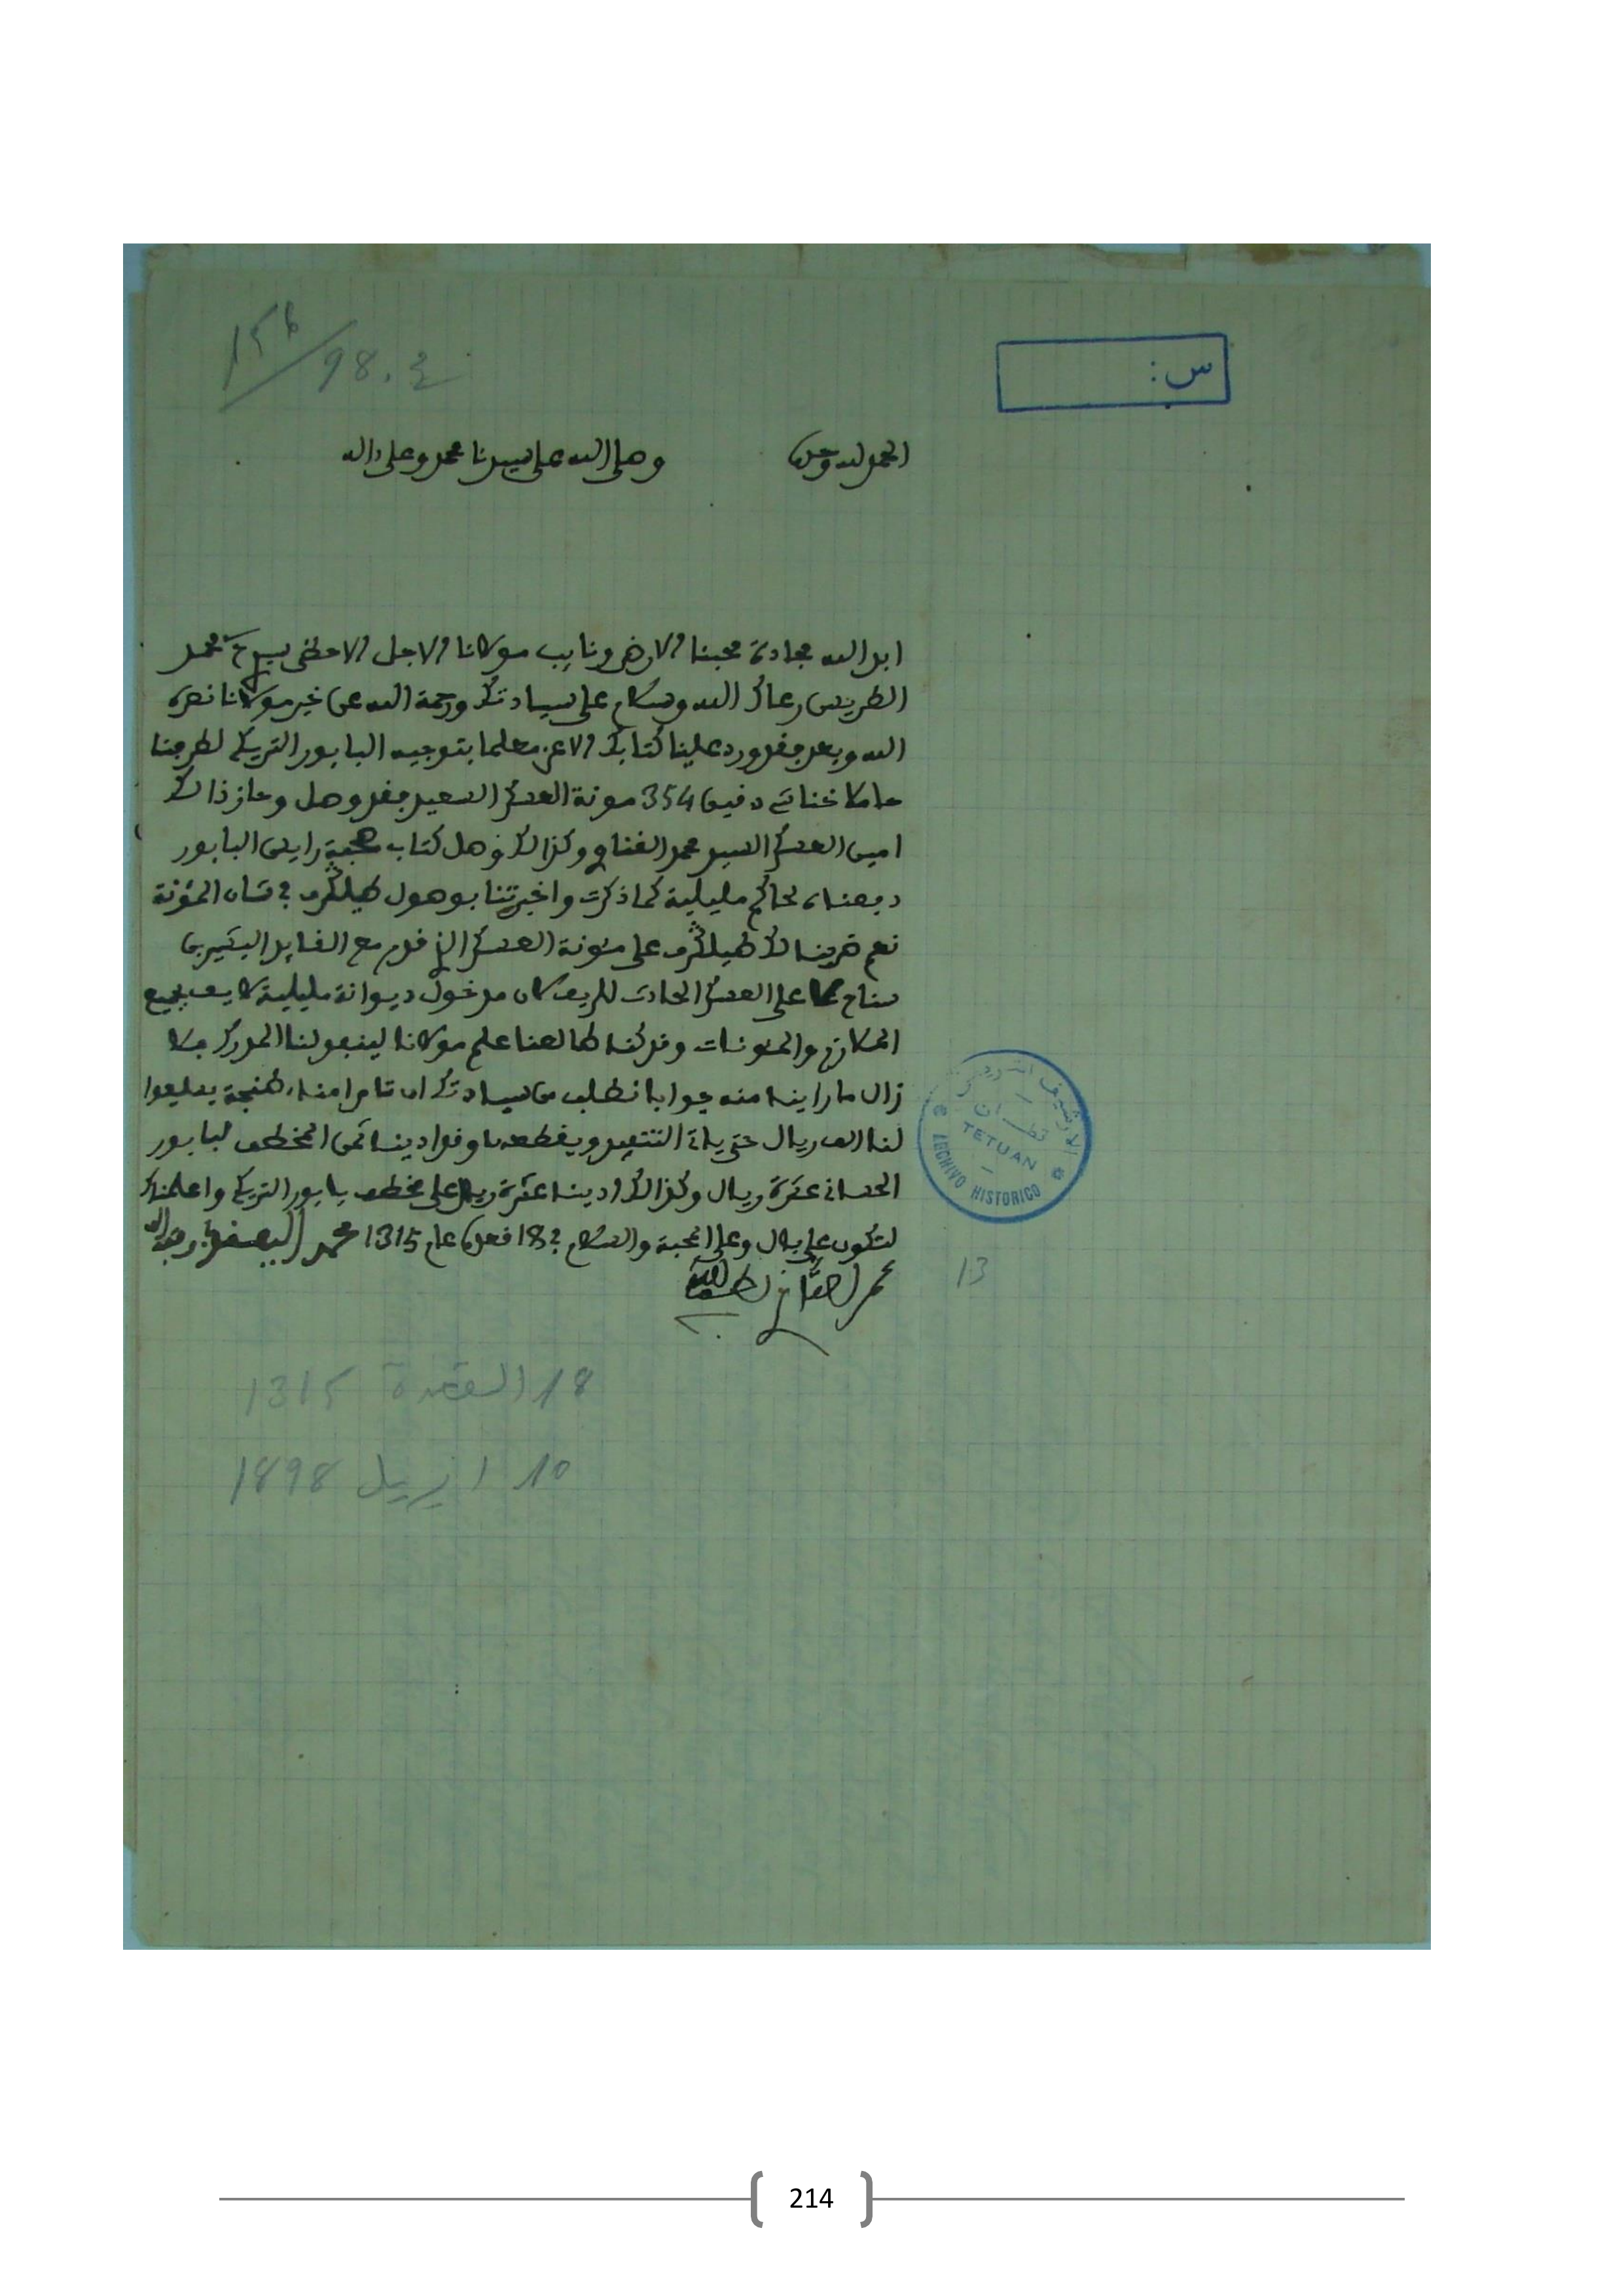 156/98.ع
س:
الحمد لله وحده
وصلى الله على سيدنا محمد وعلى ءاله
ابد الله مجادة محبنا الارضى ونايب مولانا الاجل الاحظى سيدي الحاج محمد
الطريس رعاك الله وسلام على سيادتك ورحمة الله عن خير مولانا نصره
الله وبعد فقد ورد علينا كتابك الاعز معلما بتوجيه البابور التركي لطرفنا
حاملا خناشي دقيق 354 مونة العسكر السعيد فقد وصل وحاز ذالك
امين العسكر السيد محمد الغناي وكذالك وصل كتاب صحبة رايس البابور
دفعناه لحاكم مليلية كما ذكرت واخبرتنا بوصول طيلكرف في شان المؤنة
نعم ضربنا لك طيلكرف على مئونة العسكر الذي قدم مع القايد البشير بن
سناح على العسكر الحادث للريف لان مدخول ديوانة مليلية لا يف بجميع
المكارم والمئونات وقد كنا طالعنا علم مولانا لينفد لنا المدرك فلا
زال ما راينا منه جوابا نطلب من سيادتك ان تامر امناء طنجة يدفعوا
لنا الف ريال حتى ياتي التنفيد ويقطعها وقد ادينا ثمن المخطف لبابور
الحساني عشرة ريال وكذالك ادينا عشرة ريال على مخطف بابور التركي واعلمناك
لتكون على بال وعلى المحبة والسلام في 18 قعدة عام 1315 محمد
محمد لطف الله
الارشيف التاريخي
تطوان
TETUAN
ARCHIVO HISTORICO
13
18 القعدة 1315
10 ابريل 1898
214